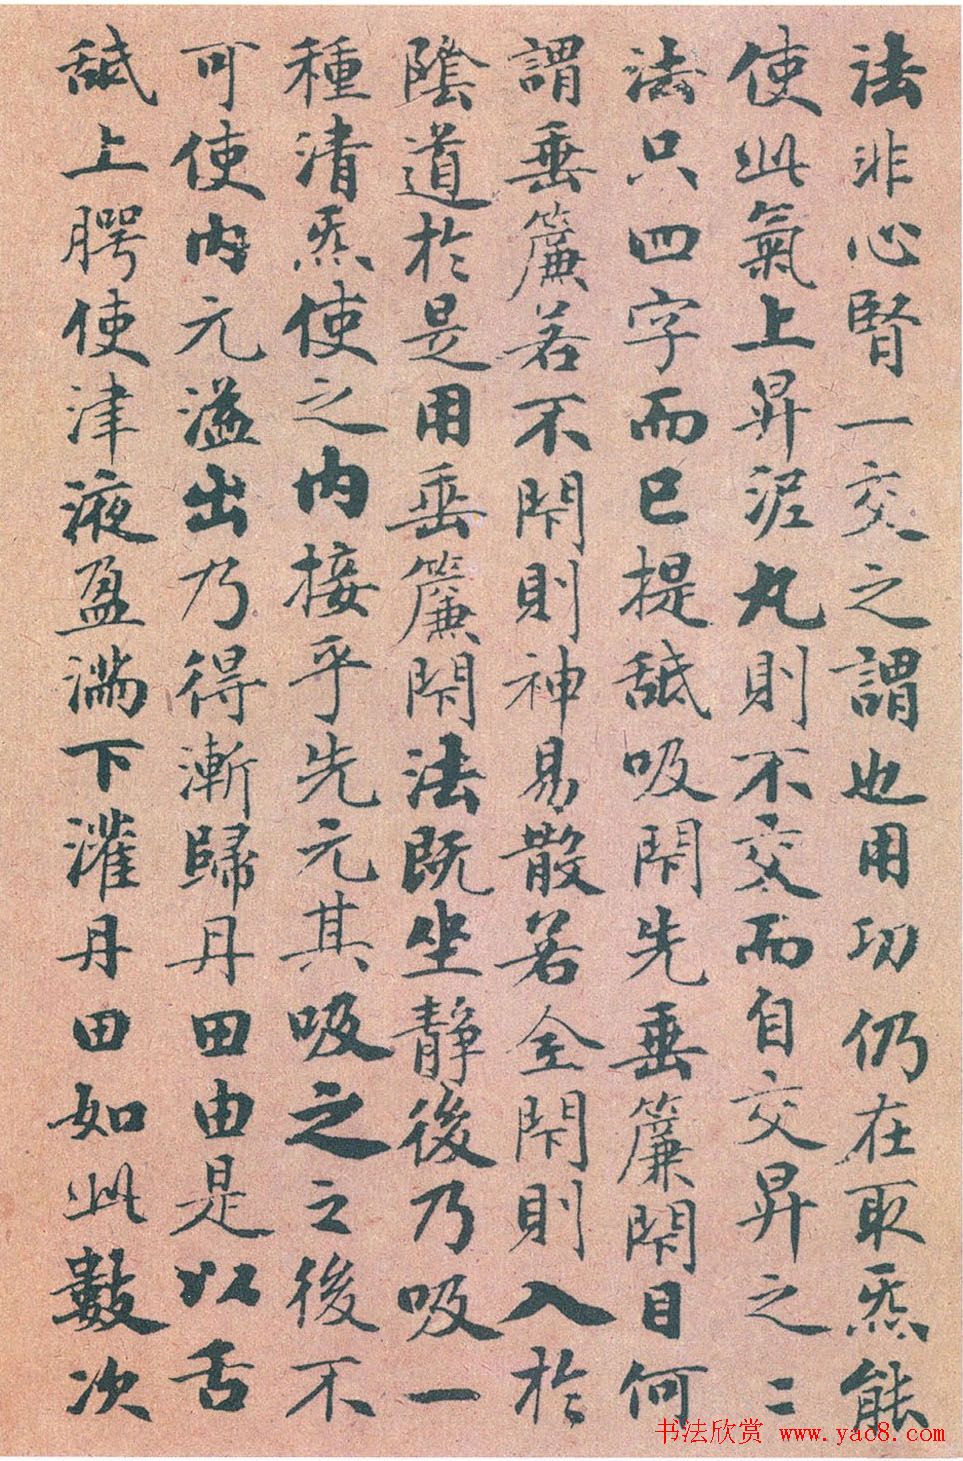 法非心腎一交之謂也用功仍在取炁能
使此氣上昇泥丸則不交而自交昇之之
法只四字而已提舐吸閇先垂簾閇目何
謂垂簾若不閇則神易散若全閇則入於
陰道於是用垂簾閇法既坐靜後乃吸一
種清炁使之內接乎先元其吸之之後不
可使內元溢出乃得漸歸丹田由是以舌
舐上腭使津液盈滿下灌丹田如此數次
书法欣赏 www.yac8.com